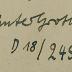 unter Groth
D 18/249